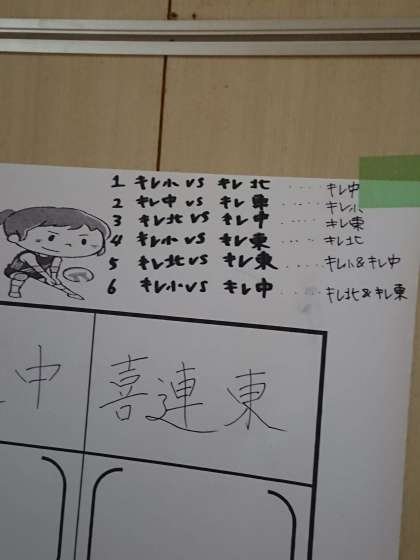 1 キレ小 VS キレ北 ‥‥ キレ中
2 キレ中 VS キレ東 ‥‥ キレ小
3 キレ北 VS キレ中 ‥‥ キレ東
4 キレ小 VS キレ東 ‥‥ キレ北
5 キレ北 VS キレ東 ‥‥ キレ小&キレ中
6 キレ小 VS キレ中 ‥‥ キレ北&キレ東
中 喜連東